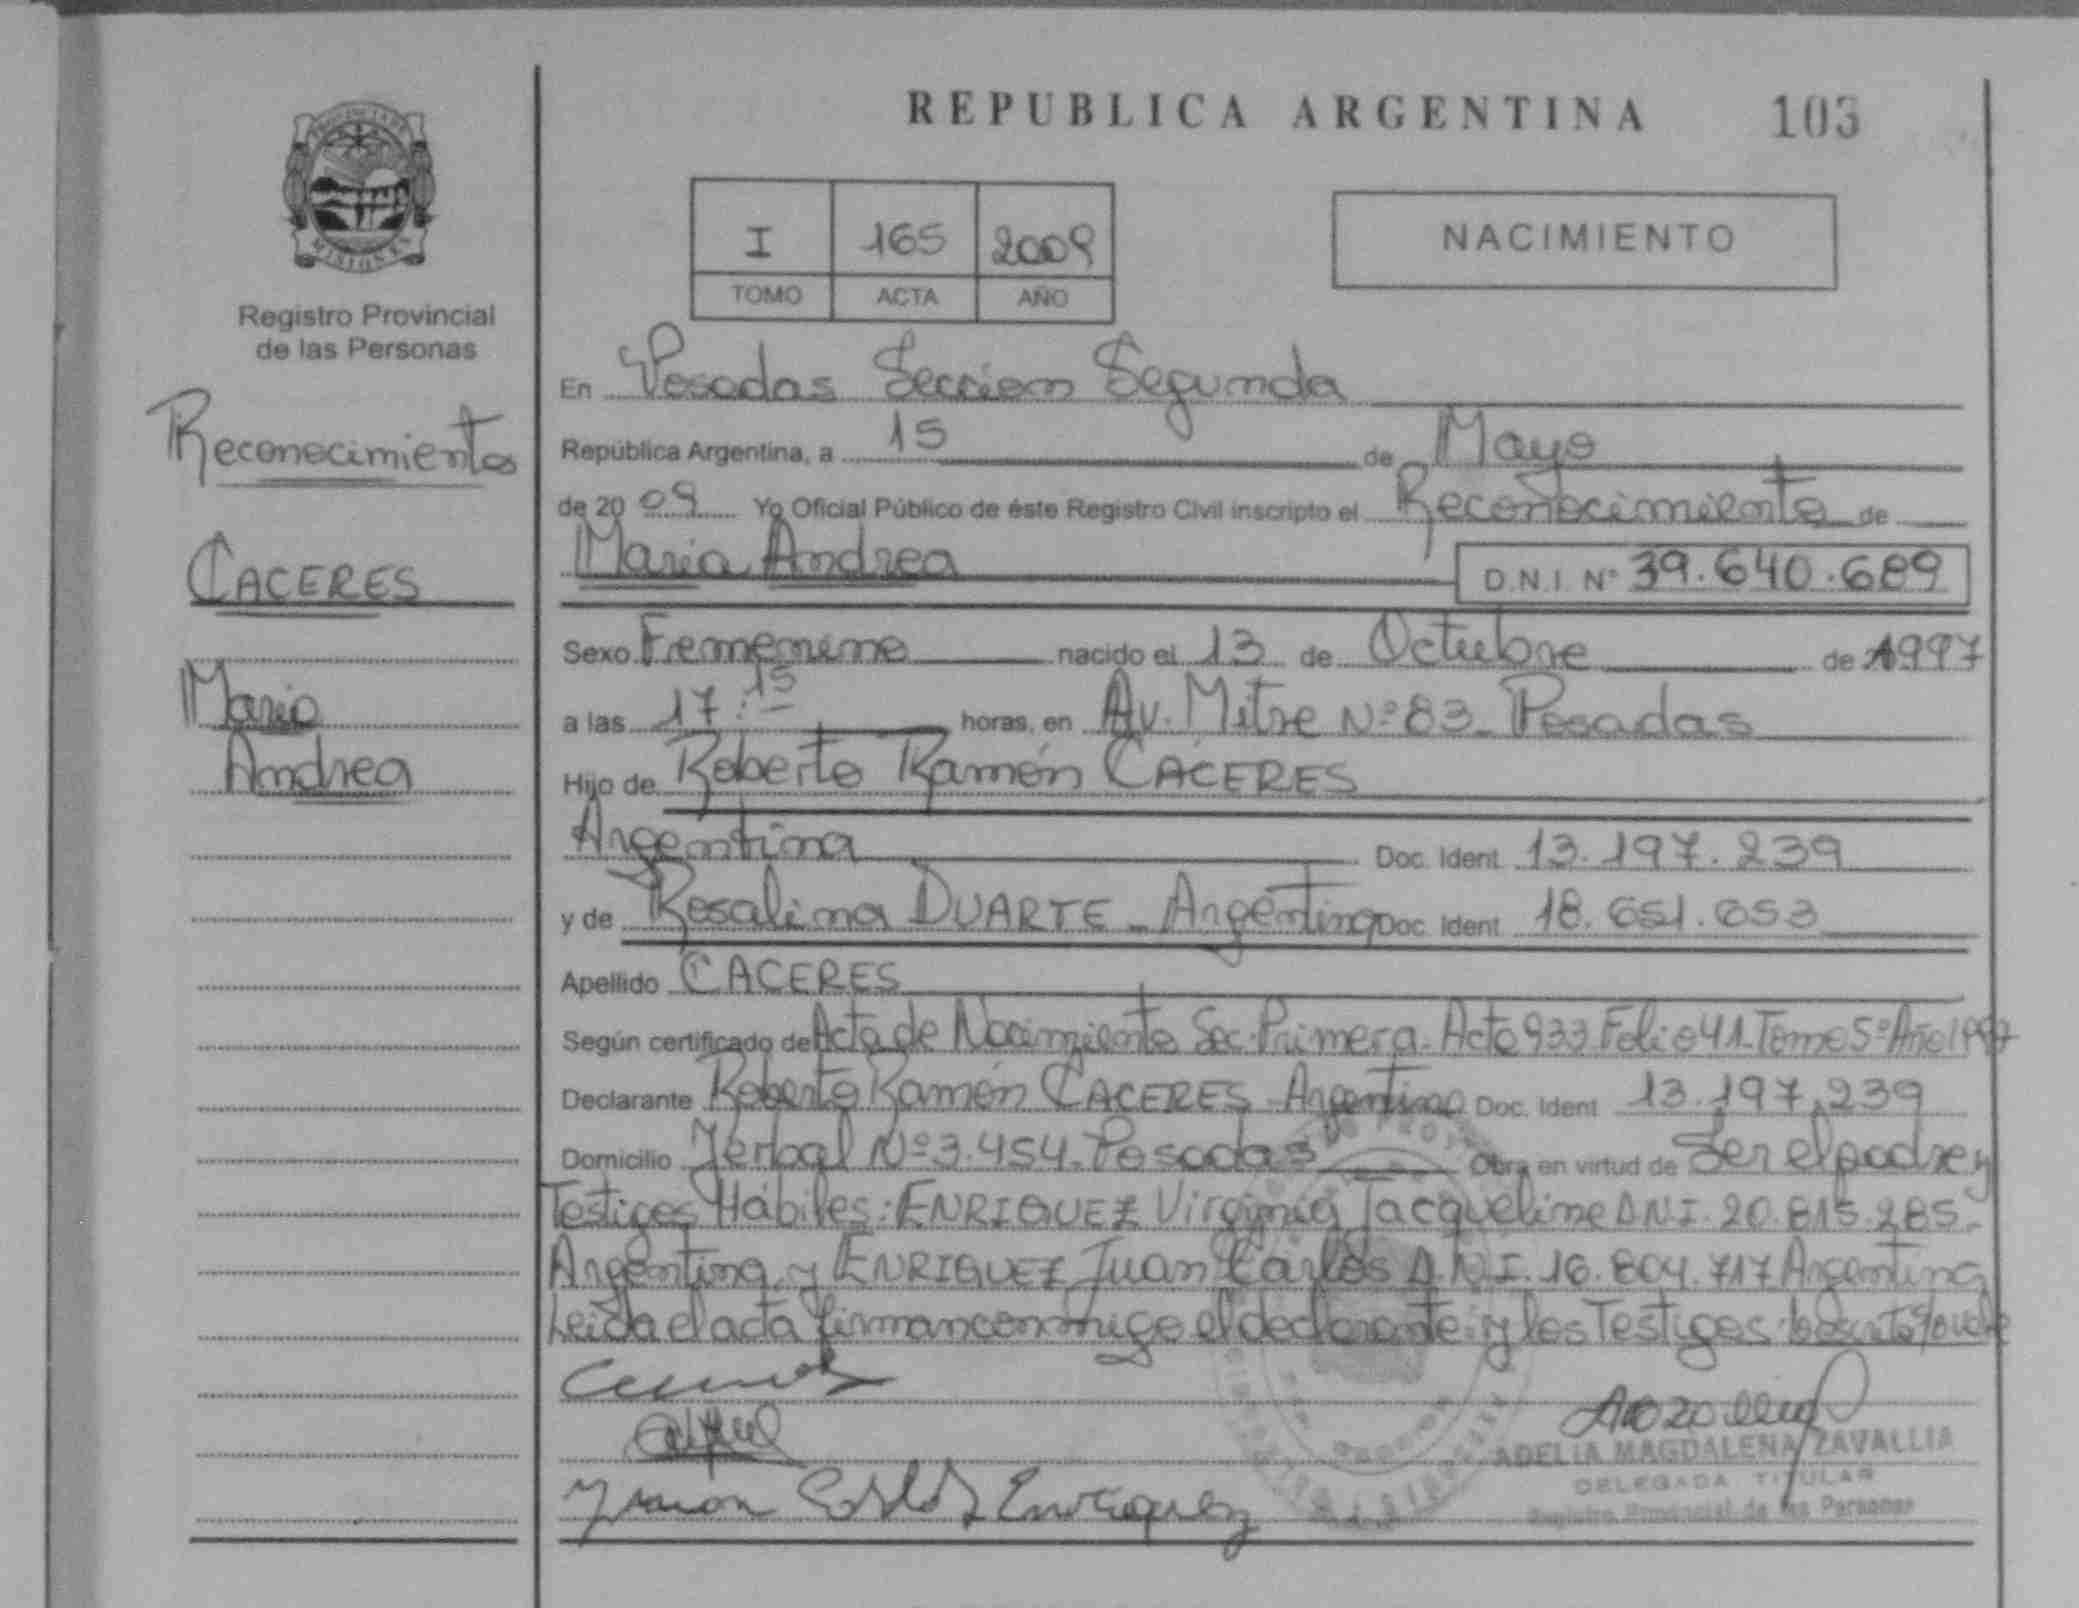 REPUBLICA ARGENTINA 103
MISIONES
Registro Provincial
de las Personas
Reconocimiento
CACERES
Maria
Andrea
I 165 2009
TOMO ACTA AÑO
NACIMIENTO
En Posadas Seccion Segunda
República Argentina, a 15 de Mayo
de 2009 Yo Oficial Público de éste Registro Civil inscripto el Reconocimiento de
Maria Andrea D.N.I. Nº 39.640.689
Sexo Femenino nacido el 13 de Octubre de 1997
a las 17:15 horas, en Av. Mitre Nº 83 - Posadas
Hijo de Roberto Ramón CACERES
Argentina Doc. Ident. 13.197.239
y de Rosalina DUARTE - Argentina Doc. Ident 18.651.653
Apellido CACERES
Según certificado de Acta de Nacimiento Sec. Primera - Acta 933 Folio 41 - Tomo 5º Año 1997
Declarante Roberto Ramón CACERES - Argentino Doc. Ident 13.197.239
Domicilio Yerbal Nº 3.454. Posadas Obra en virtud de Ser el padre y
Testigos Hábiles: ENRIQUEZ Virginia Jacqueline D.N.I. 20.815.285 -
Argentina y ENRIQUEZ Juan Carlos D.N.I. 16.804.717 Argentina
Leida el acta firman conmigo el declarante y los Testigos
Juan Carlos Enriquez
ADELIA MAGDALENA ZAVALLIA
DELEGADA TITULAR
Registro Provincial de las Personas